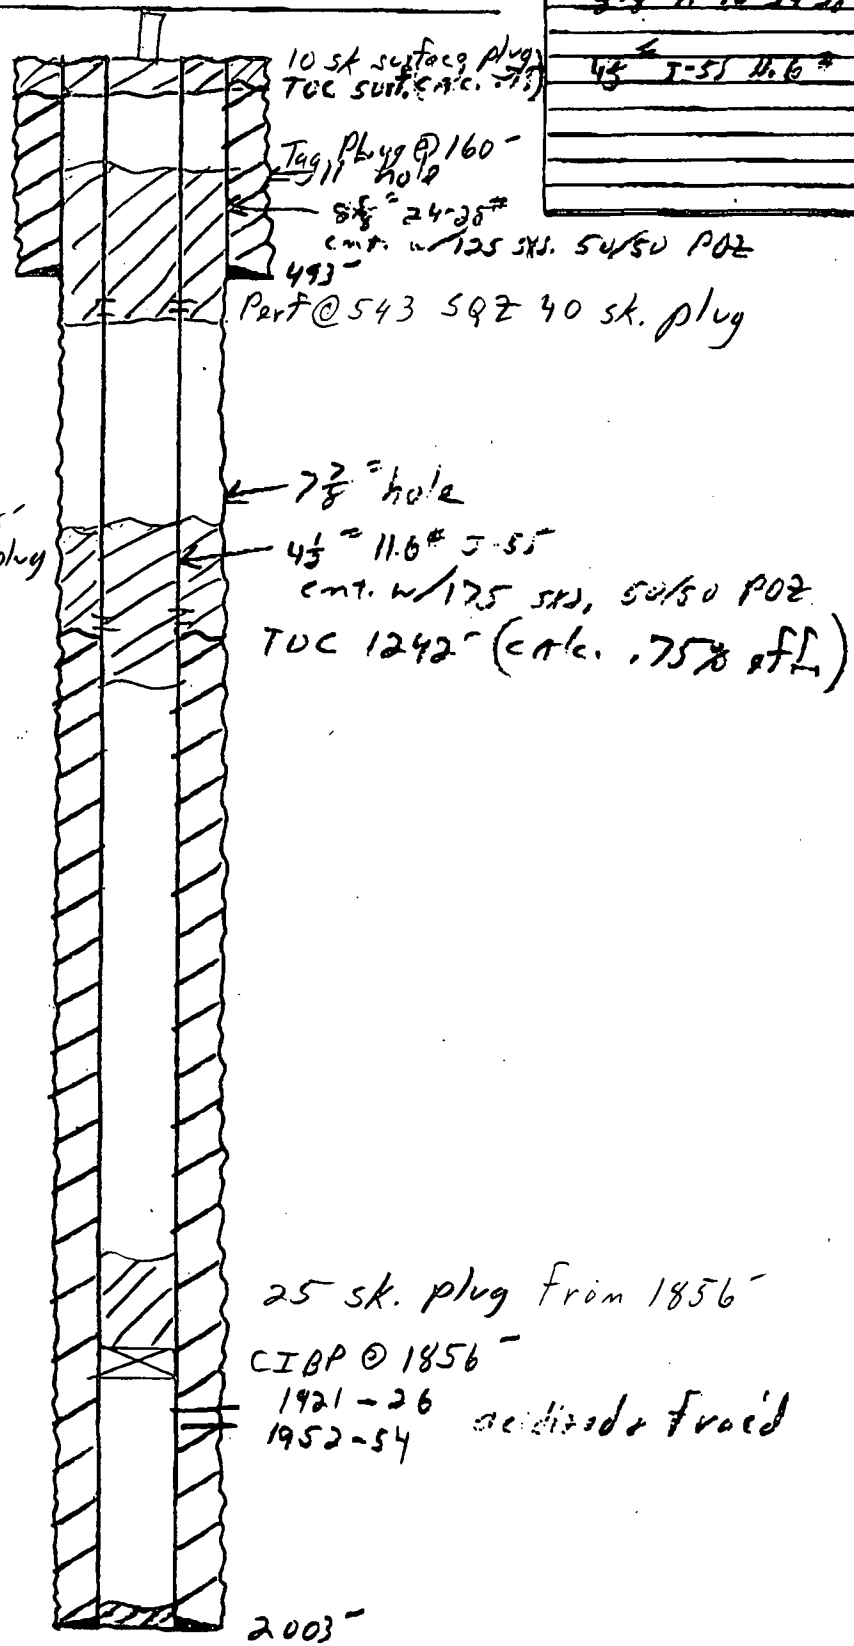 10 sk surface plug
TOC surf. (calc. .75)
4½" J-55 11.6#
Tag Plug @ 160'
11" hole
8⅝" 24-28#
cmt. w/125 sxs. 50/50 POZ
493'
Perf @ 543 SQZ 40 sk. plug
7⅞" hole
plug
4½" 11.6# J-55
cmt. w/175 sxs, 50/50 POZ
TOC 1242' (calc. .75% eff.)
25 sk. plug from 1856'
CIBP @ 1856'
1921-26
1952-54 acidized & frac'd
2003'